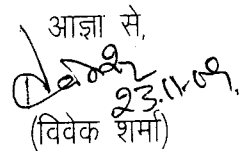 आज्ञा से,
23.11.09.
(विवेक शर्मा)